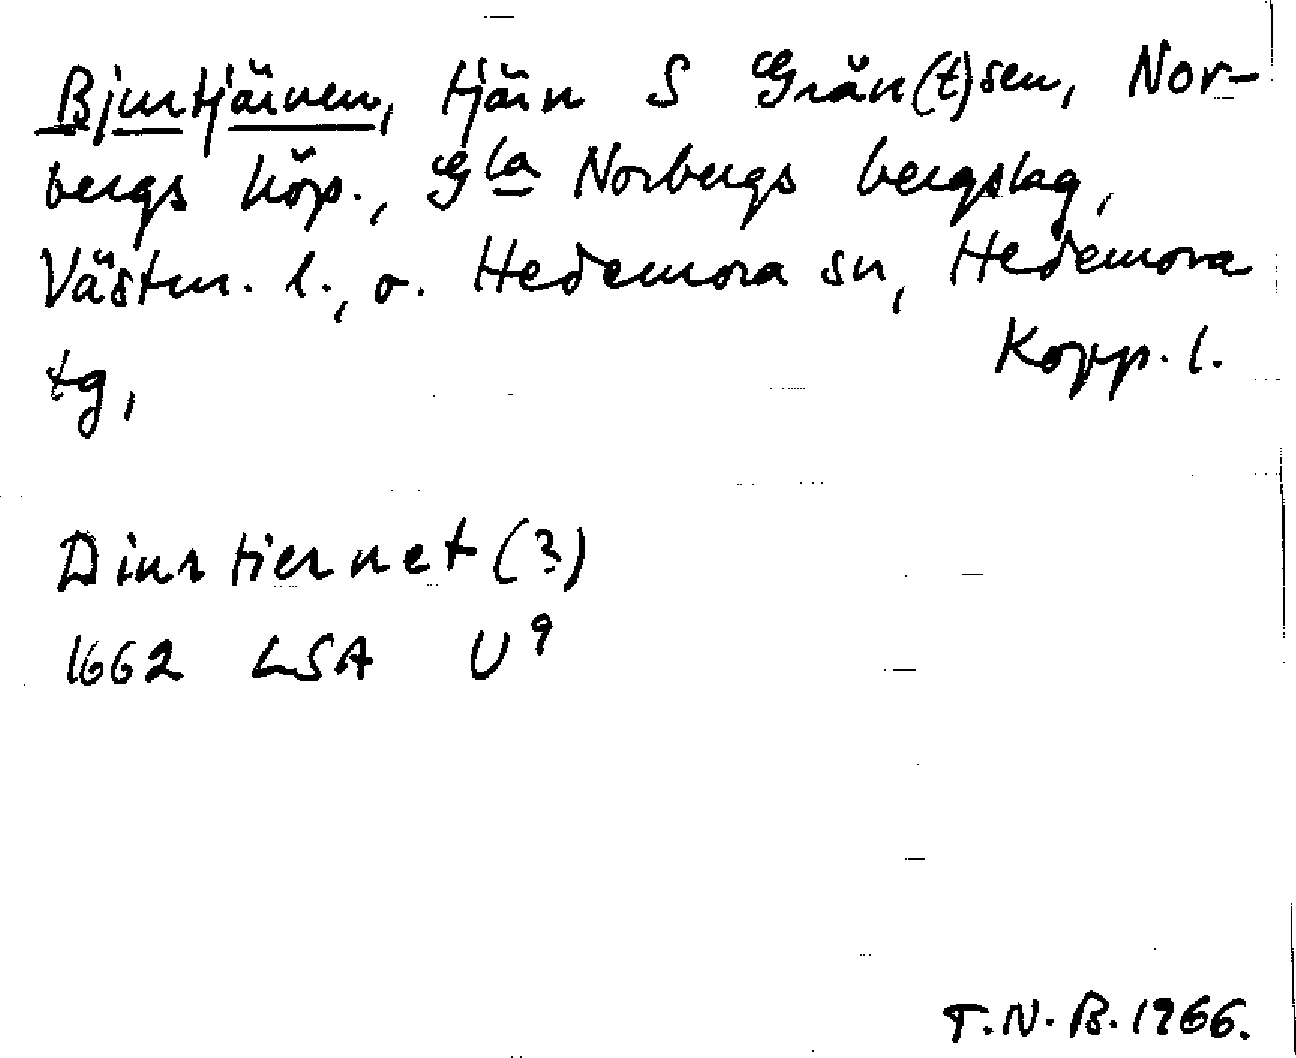 Bjurtjärnen, tjärn S Grän(t)sen, Nor-
bergs köp., Gla Norbergs bergslag,
Västm. l., o. Hedemora sn, Hedemora
tg, Kopp. l.
Diurtiernet (?)
1662 LSA U 9
T.N.B. 1966.